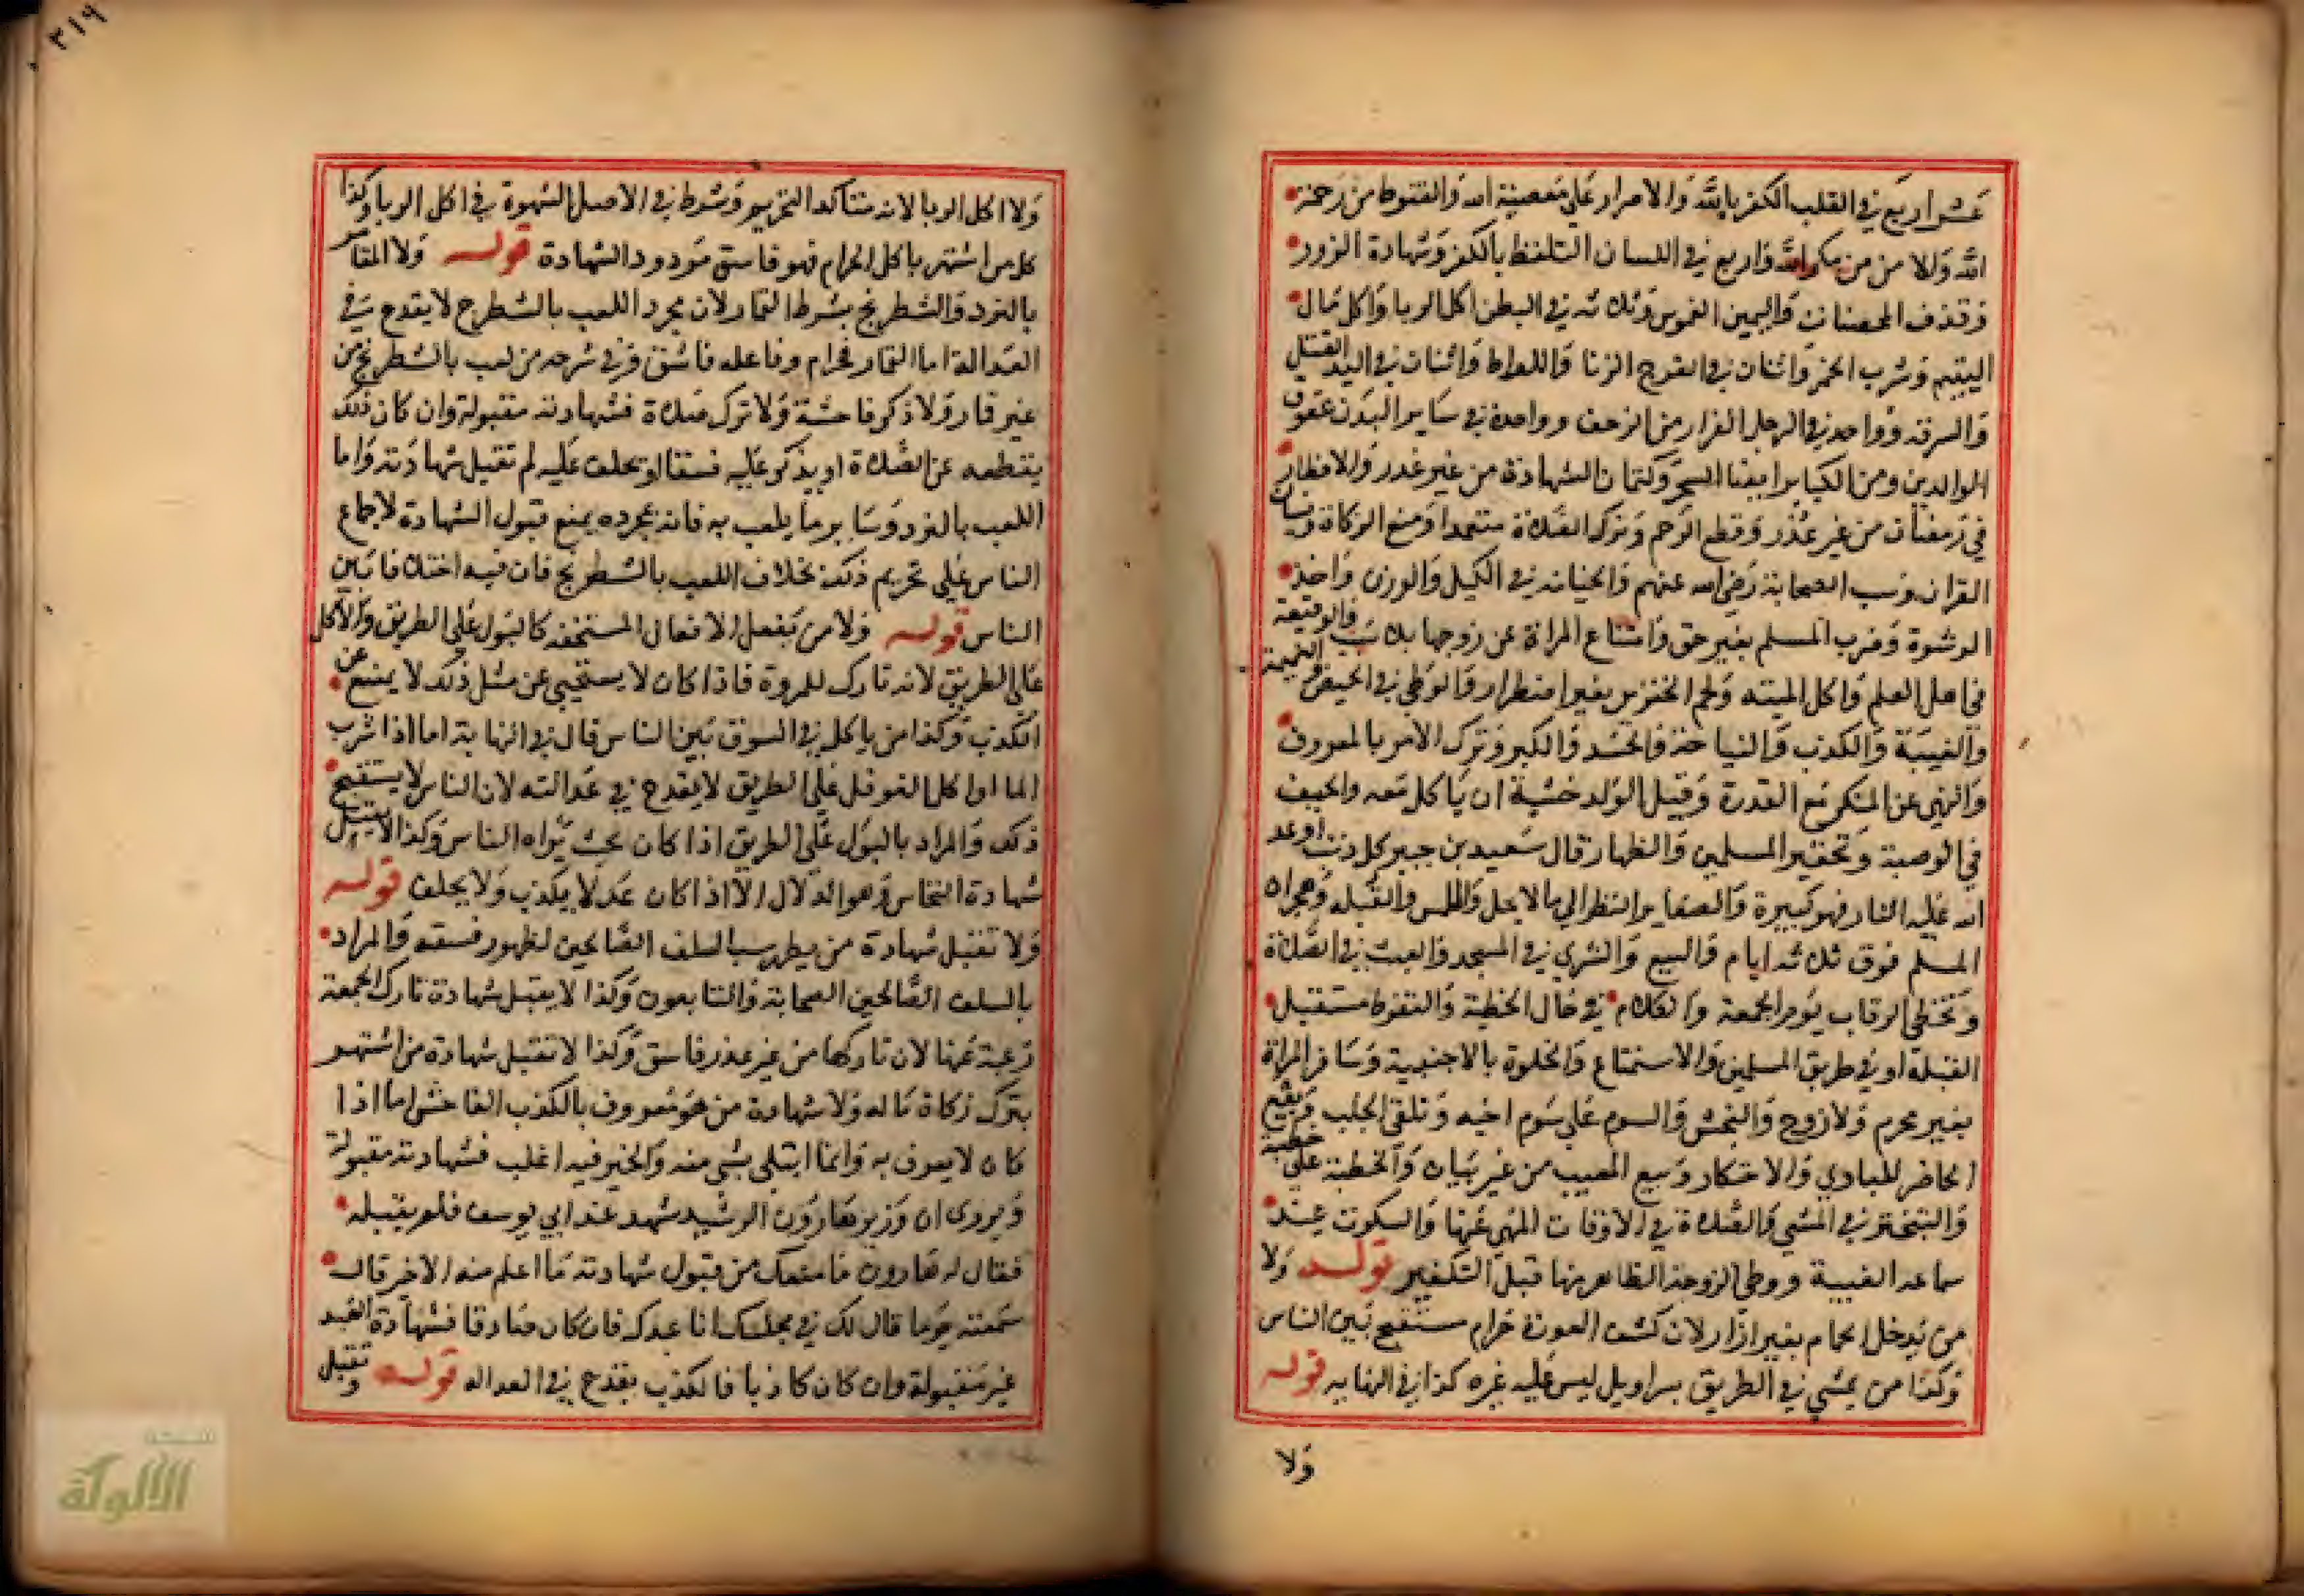 عشر اربع في القلب الكفر بالله والاصرار على معصية الله والقنوط من رحمة
الله والامن من مكر الله واربع في اللسان التلفظ بالكفر وشهادة الزور
وقذف المحصنات واليمين الغموس وثلاثه في البطن اكل الربا واكل مال
اليتيم وشرب الخمر واثنان في الفرج الزنا واللواط واثنان في اليد القتل
والسرقه وواحد في الرجل الفرار من الزحف وواحدة في ساير البدن عقوق
الوالدين ومن الكباير ايضا السحر وكتمان الشهادة من غير عذر والافطار
في رمضان من غير عذر وقطع الرحم وترك الصلاة متعمدا ومنع الزكاة ونسيان
القران وسب الصحابة رضي الله عنهم والخيانه في الكيل والوزن واخذ
الرشوة وضرب المسلم بغير حق وامتناع المراة عن زوجها بلا سبب والوقيعة
في اهل العلم واكل الميته ولحم الخنزير بغير اضطرار والوطي في الحيض والنميمة
والغيبة والكذب والنياحة والحسد والكبر وترك الامر بالمعروف
والنهي عن المنكر مع القدرة وقتل الولد خشية ان ياكل معه والحيف
في الوصية وتحقير المسلمين والظهار قال سعيد بن جبير كل ذنب اوعد
الله عليه النار فهو كبيرة والصغاير النظر الي ما لا يحل واللمس والقبله وهجران
المسلم فوق ثلاثه ايام والبيع والشري في المسجد والعبث في الصلاة
وتخطي الرقاب يوم الجمعة والكلام في حال الخطبة والتغوط مستقبل
القبلة او في طريق المسلمين والاستمتاع والخلوة بالاجنبية وسافر المراة
بغير محرم ولا زوج والنجش والسوم على سوم اخيه وتلقي الجلب وبيع
الحاضر للبادي والاحتكار وبيع المعيب من غير بيان والخطبة على خطبة
والتبختر في المشي والصلاة في الاوقات المنهي عنها والسكوت عند
سماعه الغيبة ووطي الزوجة الظاهر منها قبل التكفير قوله ولا
من يدخل الحمام بغير ازار لان كشف العورة حرام مستقبح بين الناس
وكذا من يمشي في الطريق بسراويل ليس عليه غيره كذا في النهايه قوله
ولا
٣١٩
ولا اكل الربا لانه متاكد التحريم وشرط في الاصل الشهرة في اكل الربا وكذا
كل من اشتهر باكل الحرام فهو فاسق مردود الشهادة قوله ولا المقامر
بالنرد والشطرنج بشرط القمار لان مجرد اللعب بالشطرنج لا يقدح في
العدالة اما القمار فحرام وفاعله فاسق وفي شرحه من لعب بالشطرنج من
غير قمار ولا ذكر فاحشة ولا ترك صلاة فشهادته مقبولة وان كان ذلك
يقطعه عن الصلاة او يذكر عليه فسقا او يحلف عليه لم تقبل شهادته واما
اللعب بالنرد وساير ما يلعب به فانه بمجرده يمنع قبول الشهادة لاجماع
الناس على تحريم ذلك بخلاف اللعب بالشطرنج فان فيه اختلافا بين
الناس قوله ولا من يفعل الافعال المستخفه كالبول على الطريق والاكل
على الطريق لانه تارك للمروة فاذا كان لا يستحيي عن مثل ذلك لا يمتنع عن
الكذب وكذا من ياكل في السوق بين الناس قال في النهاية اما اذا شرب
الما او اكل الفوفل على الطريق لا يقدح في عدالته لان الناس لا يستقبح
ذلك والمراد بالبول على الطريق اذا كان بحيث يراه الناس وكذا لا تقبل
شهادة النخاس وهو الدلال الا اذا كان عدلا لا يكذب ولا يحلف قوله
ولا تقبل شهادة من يظهر سب السلف الصالحين لظهور فسقه والمراد
بالسلف الصالحين الصحابة والتابعون وكذا لا يقبل شهادة تارك الجمعة
رغبة عنها لان تاركها من غير عذر فاسق وكذا لا تقبل شهادة من اشتهر
بترك زكاة ماله ولا شهادة من هو معروف بالكذب الفاحش اما اذا
كان لا يعرف به وانما ابتلي بشي منه والخير فيه اغلب فشهادته مقبولة
ويروى ان وزير هارون الرشيد شهد عند ابي يوسف فلم يقبله
فقال له هارون ما منعك من قبول شهادته ما اعلم منه الا خير قال
سمعته يوما قال لك في مجلسك انا عبدك فان كان صادقا فشهادة العبد
غير مقبولة وان كان كاذبا فالكذب يقدح في العداله قوله وتقبل
شبكة
الألوكة